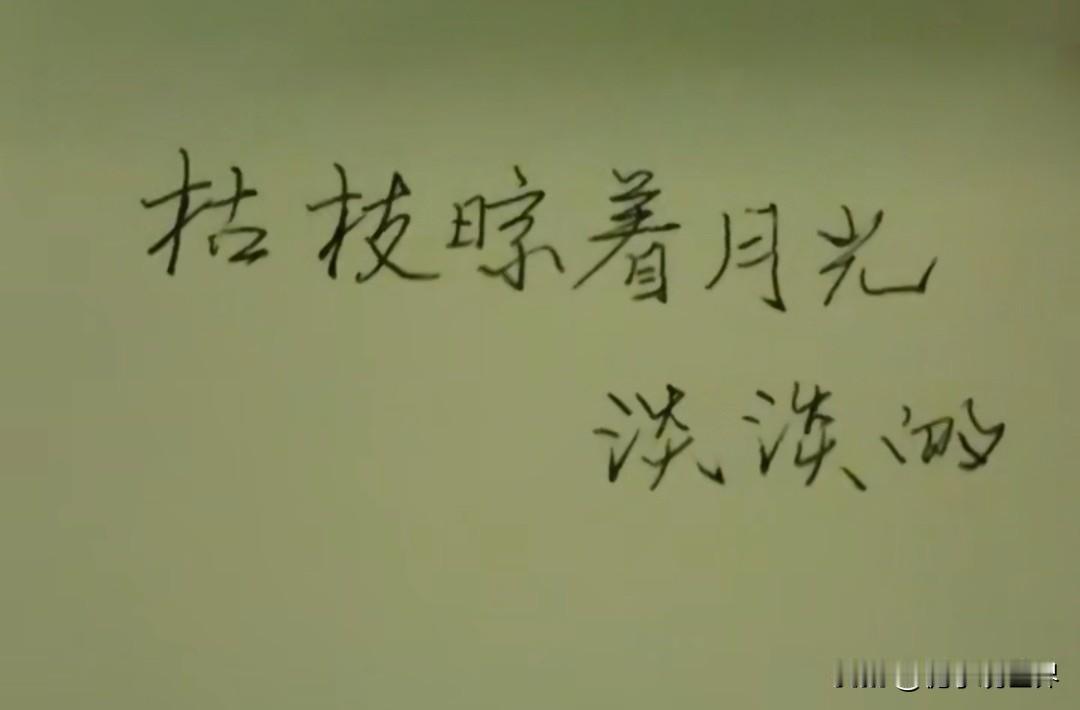 枯枝晾着月光
淡淡的